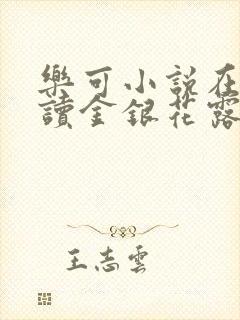 樂可小說在
讀金銀花露
王志雲